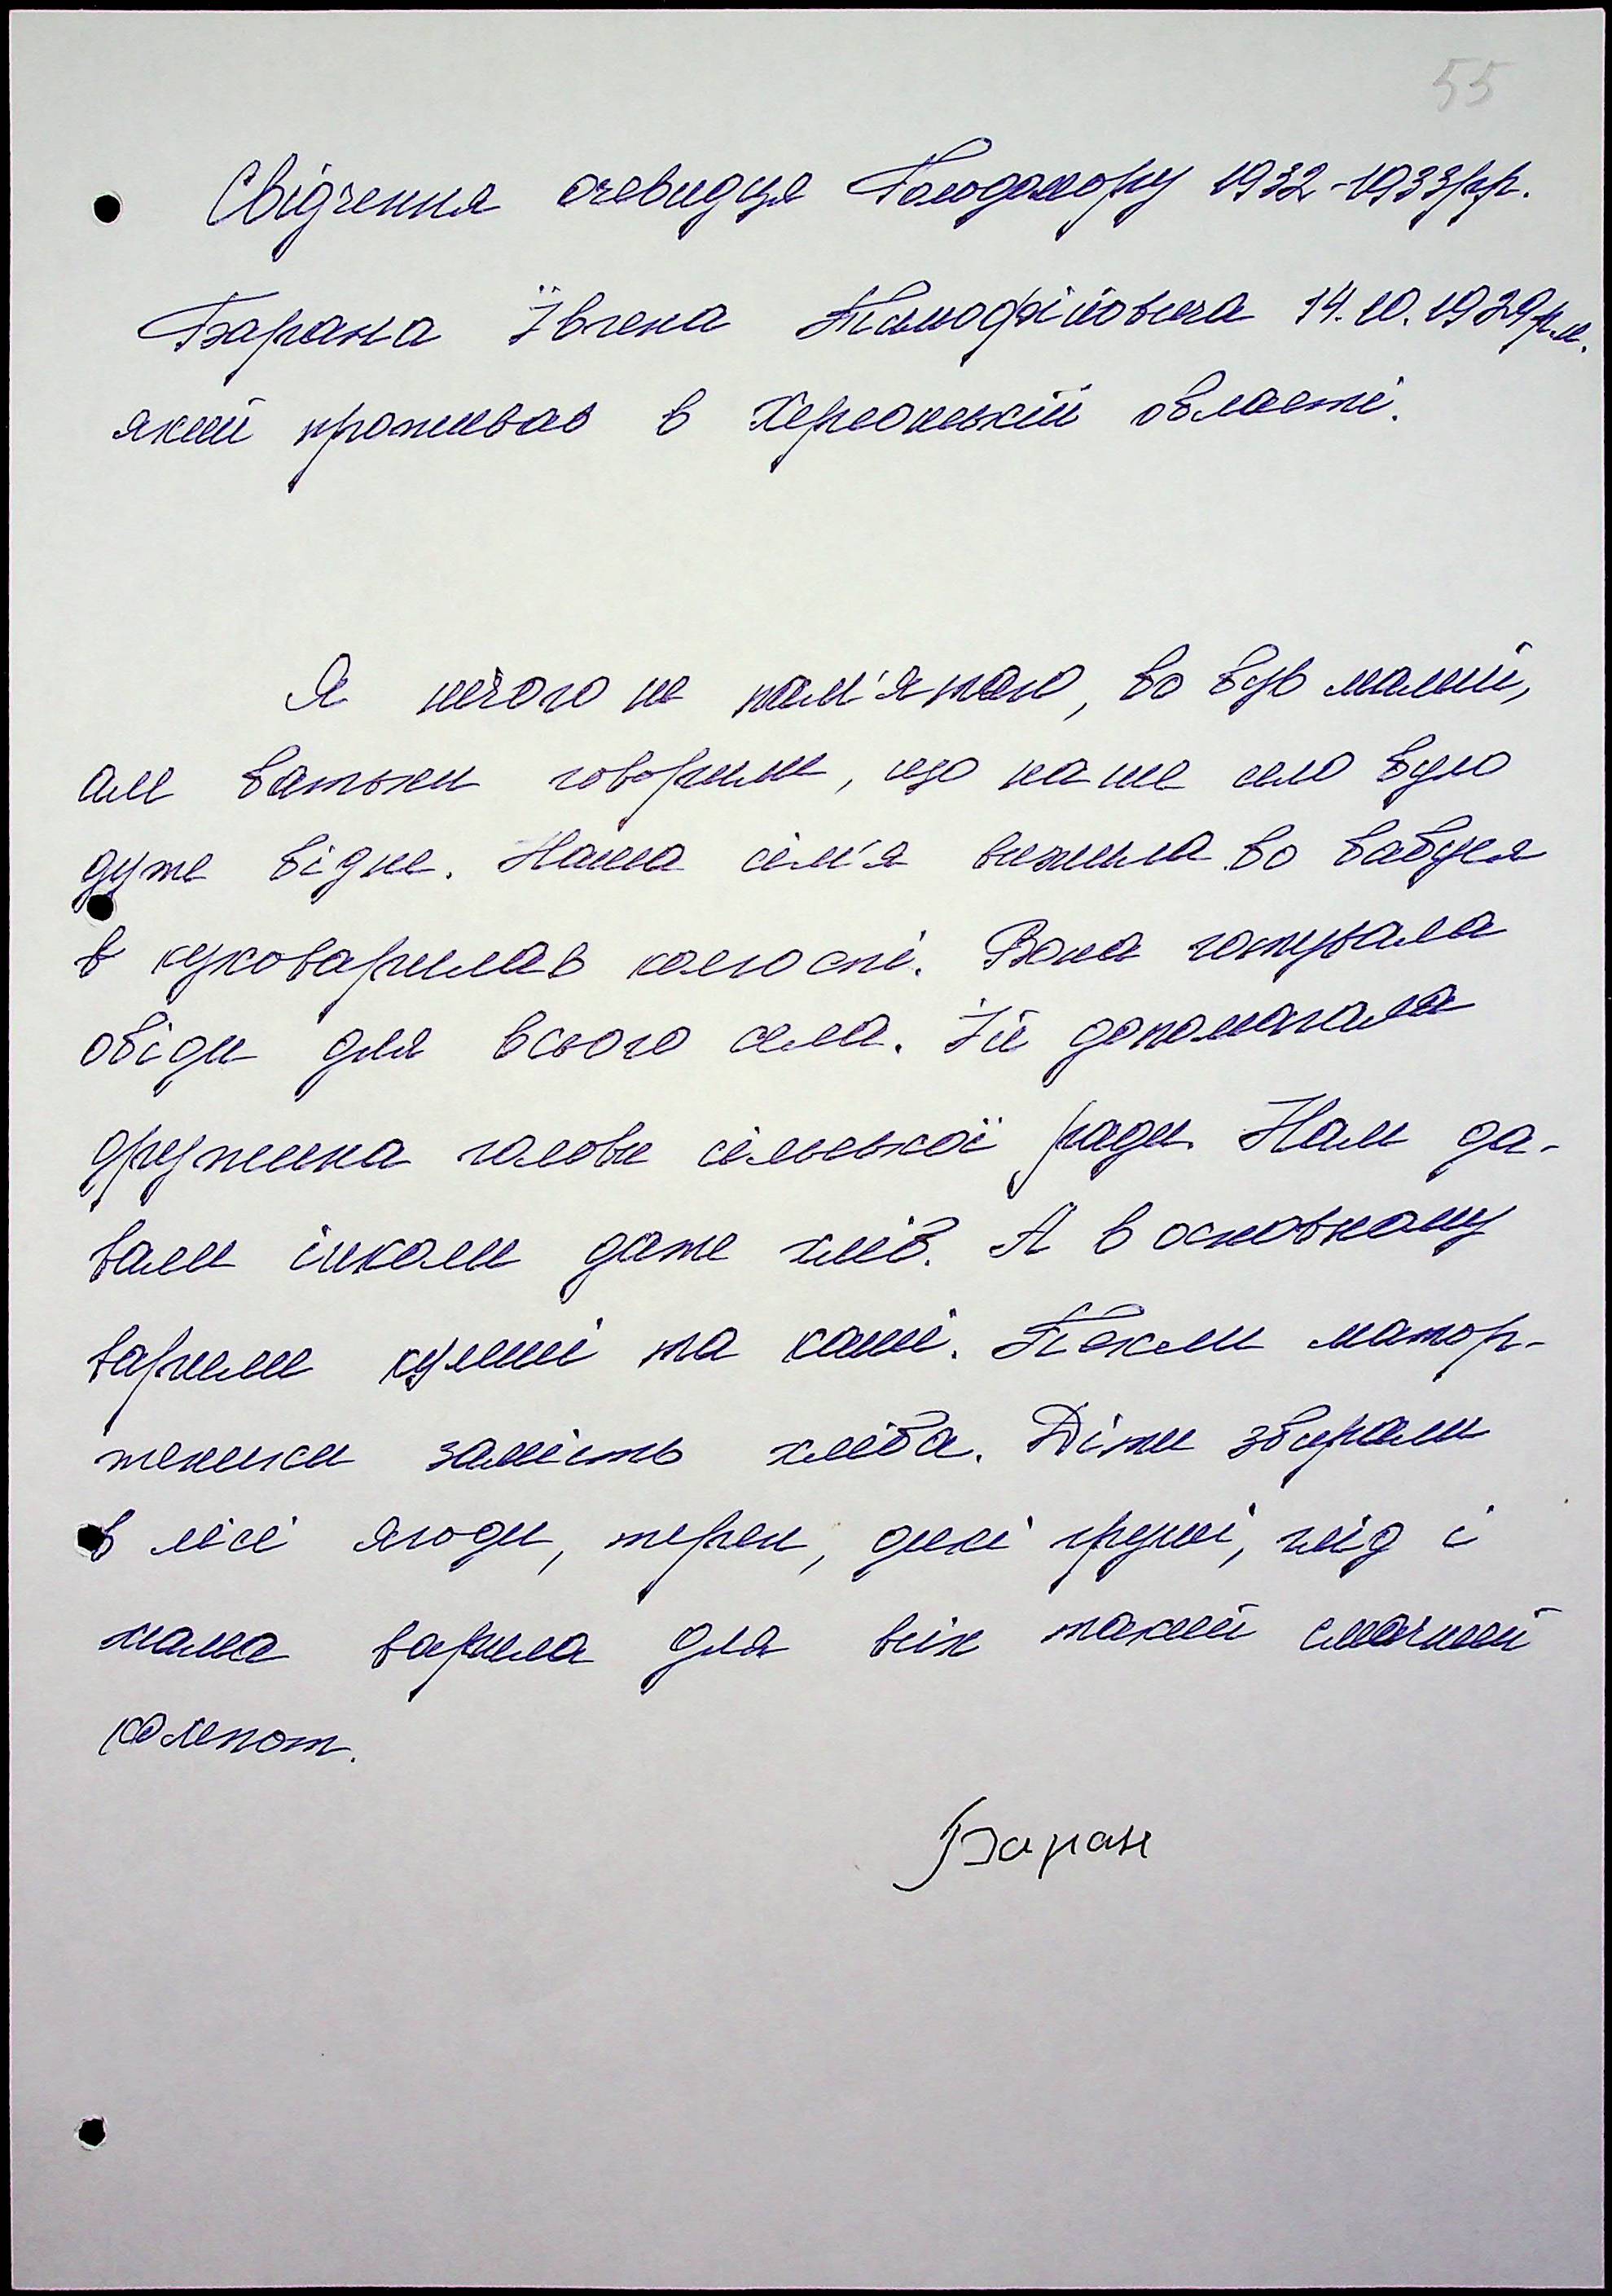 55
Свідчення очевидця Голодомору 1932-1933рр.
Барана Ївгена Тимофійовича 14.10.1929р.н.
який проживав в Херсонській області.
Я нічого не пам'ятаю, бо був малий,
але батьки говорили, що наше село було
дуже бідне. Наша сім'я вижила бо бабуся
в куховарила в колгоспі. Вона готувала
обіди для всього села. Їй допомагала
дружина голови сільської ради. Нам да-
вали інколи даже хліб. А в основному
варили куліші та каші. Пекли матор-
женики замість хліба. Діти збирали
в лісі ягоди, терен, дикі груші, глід і
мама варила для всіх такий смачний
компот.
Баран